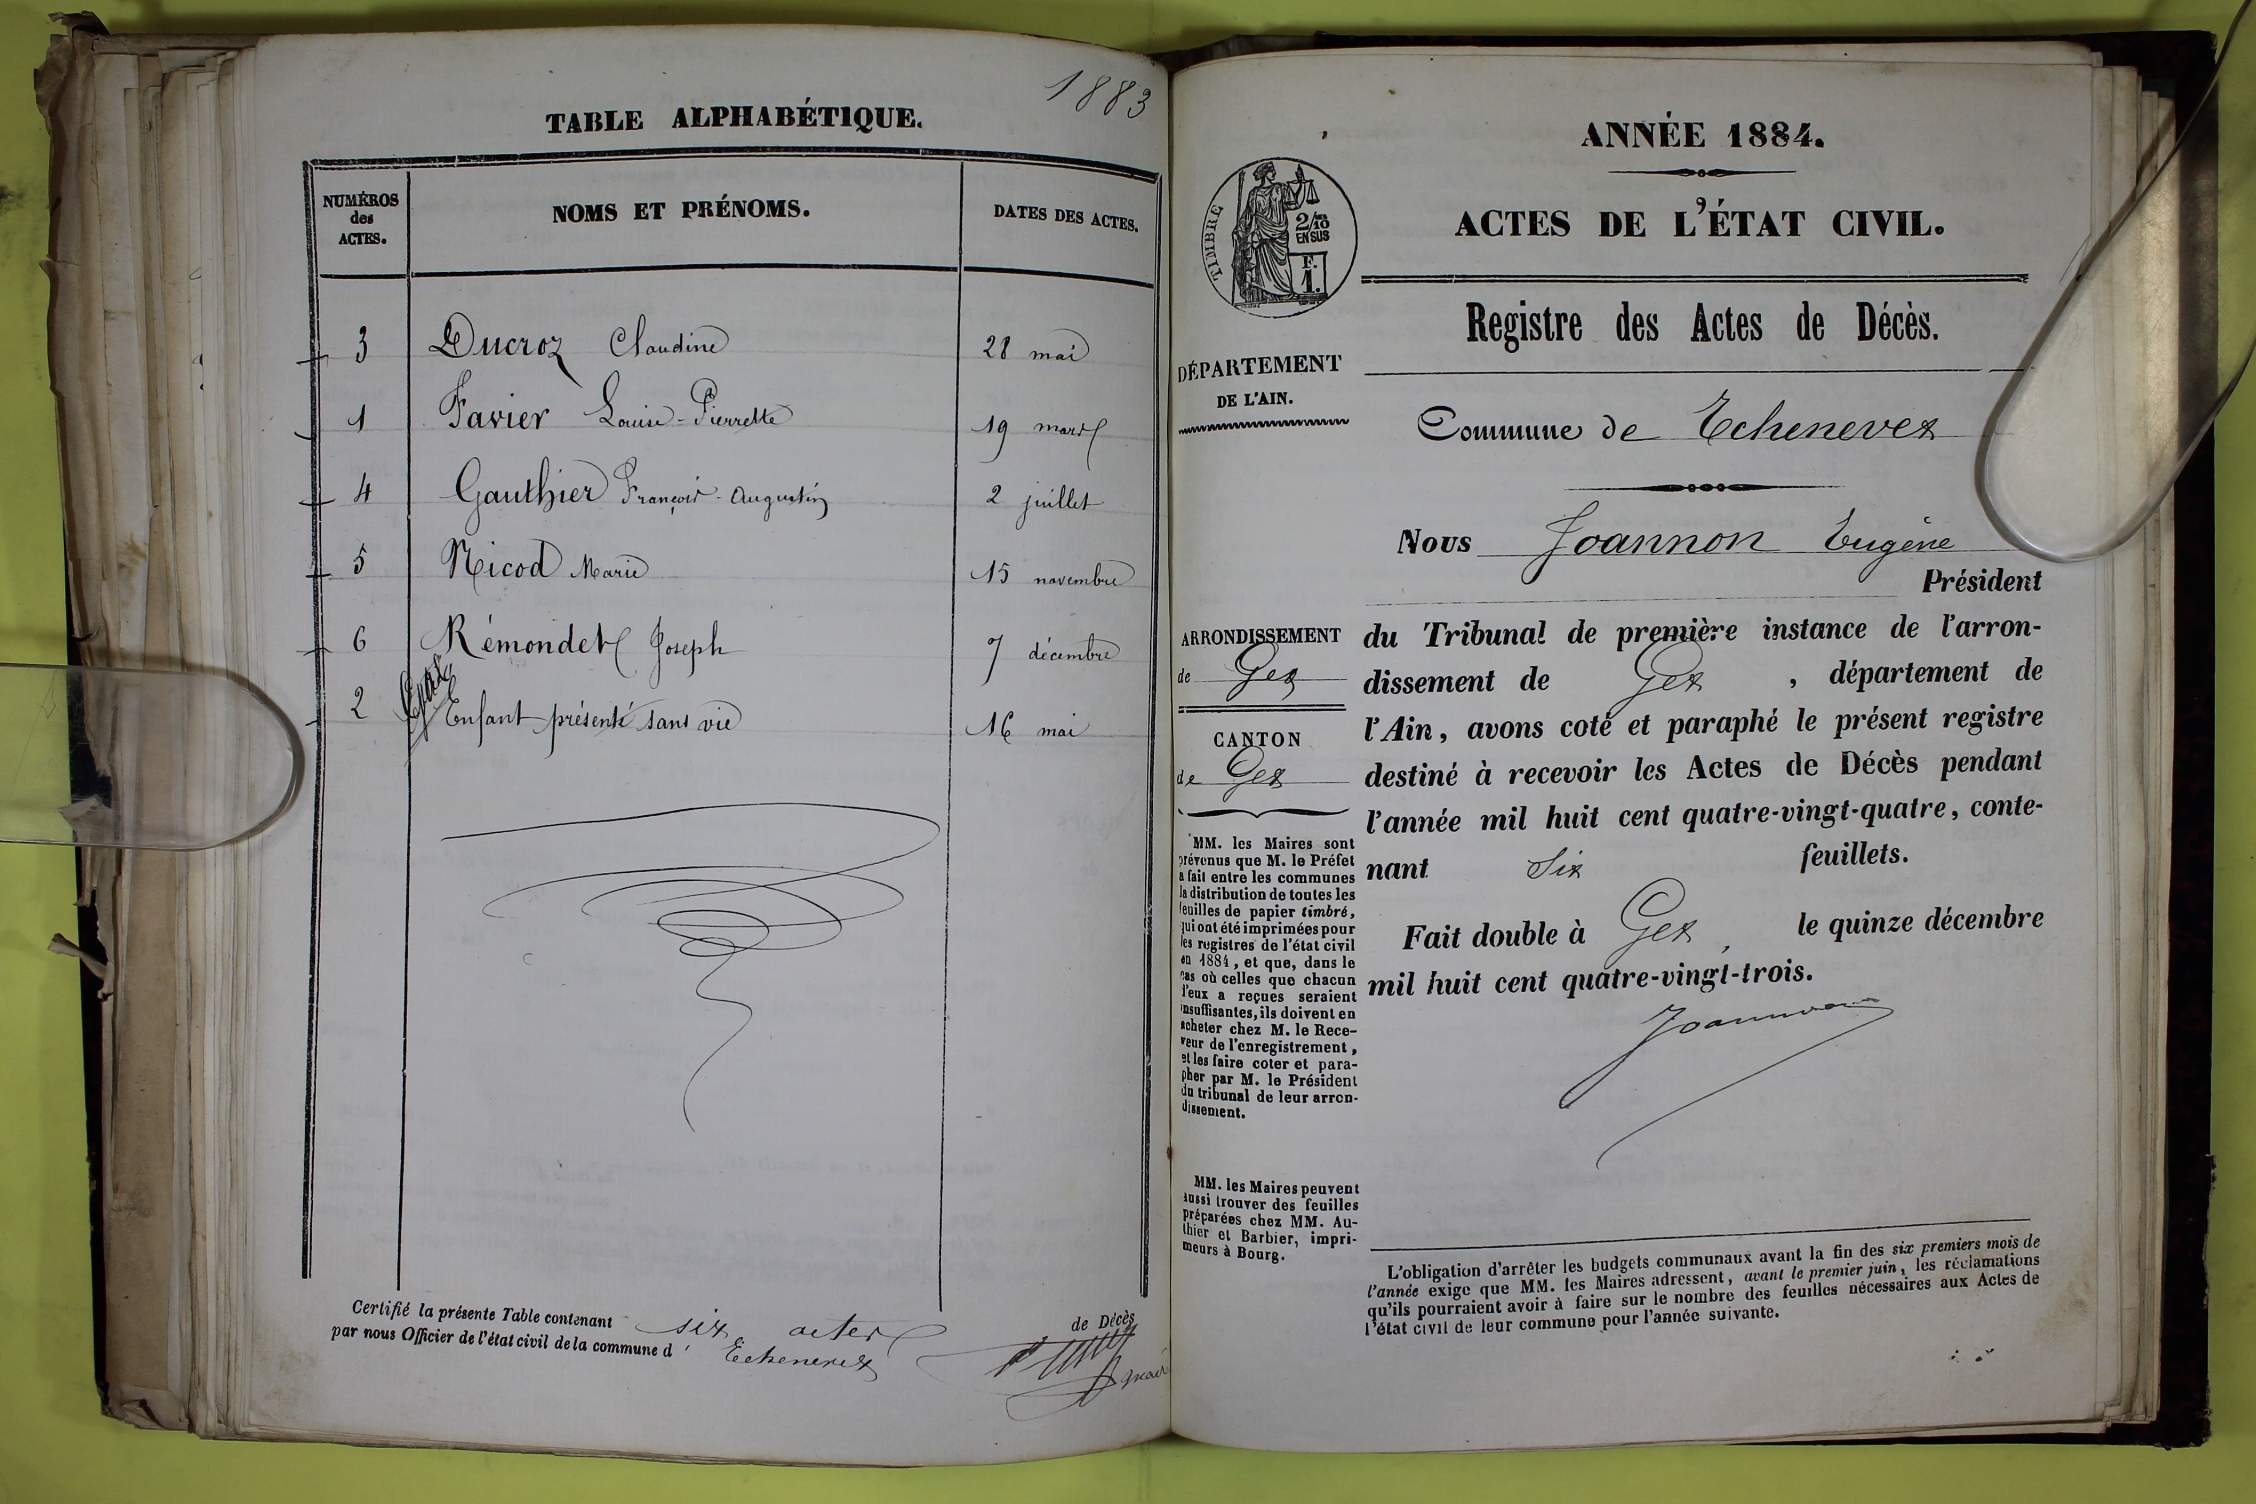 1883
TABLE ALPHABÉTIQUE.
NUMÉROS
des
ACTES.
NOMS ET PRÉNOMS.
DATES DES ACTES.
3 Ducroz Claudine 28 mai
1 Favier Louise-Pierrette 19 mars
4 Gauthier François-Augustin 2 juillet
5 Nicod Marie 15 novembre
6 Rémondet Joseph 7 décembre
2 Enfant présenté sans vie 16 mai
Certifié la présente Table contenant six actes de Décès
par nous Officier de l'état civil de la commune d' Echenevex
ANNÉE 1884.
ACTES DE L'ÉTAT CIVIL.
TIMBRE
2/10
EN SUS
F.
1.
Registre des Actes de Décès.
DÉPARTEMENT
DE L'AIN.
Commune de Echenevex
Nous Joannon Eugène
Président
ARRONDISSEMENT
de Gex
CANTON
de Gex
du Tribunal de première instance de l'arron-
dissement de Gex, département de
l'Ain, avons coté et paraphé le présent registre
destiné à recevoir les Actes de Décès pendant
l'année mil huit cent quatre-vingt-quatre, conte-
nant Six feuillets.
Fait double à Gex, le quinze décembre
mil huit cent quatre-vingt-trois.
Joannon
MM. les Maires sont
prévenus que M. le Préfet
a fait entre les communes
la distribution de toutes les
feuilles de papier timbré,
qui ont été imprimées pour
les registres de l'état civil
en 1884, et que, dans le
cas où celles que chacun
d'eux a reçues seraient
insuffisantes, ils doivent en
acheter chez M. le Rece-
veur de l'enregistrement,
et les faire coter et para-
pher par M. le Président
du tribunal de leur arron-
dissement.
MM. les Maires peuvent
aussi trouver des feuilles
préparées chez MM. Au-
thier et Barbier, impri-
meurs à Bourg.
L'obligation d'arrêter les budgets communaux avant la fin des six premiers mois de
l'année exige que MM. les Maires adressent, avant le premier juin, les réclamations
qu'ils pourraient avoir à faire sur le nombre des feuilles nécessaires aux Actes de
l'état civil de leur commune pour l'année suivante.